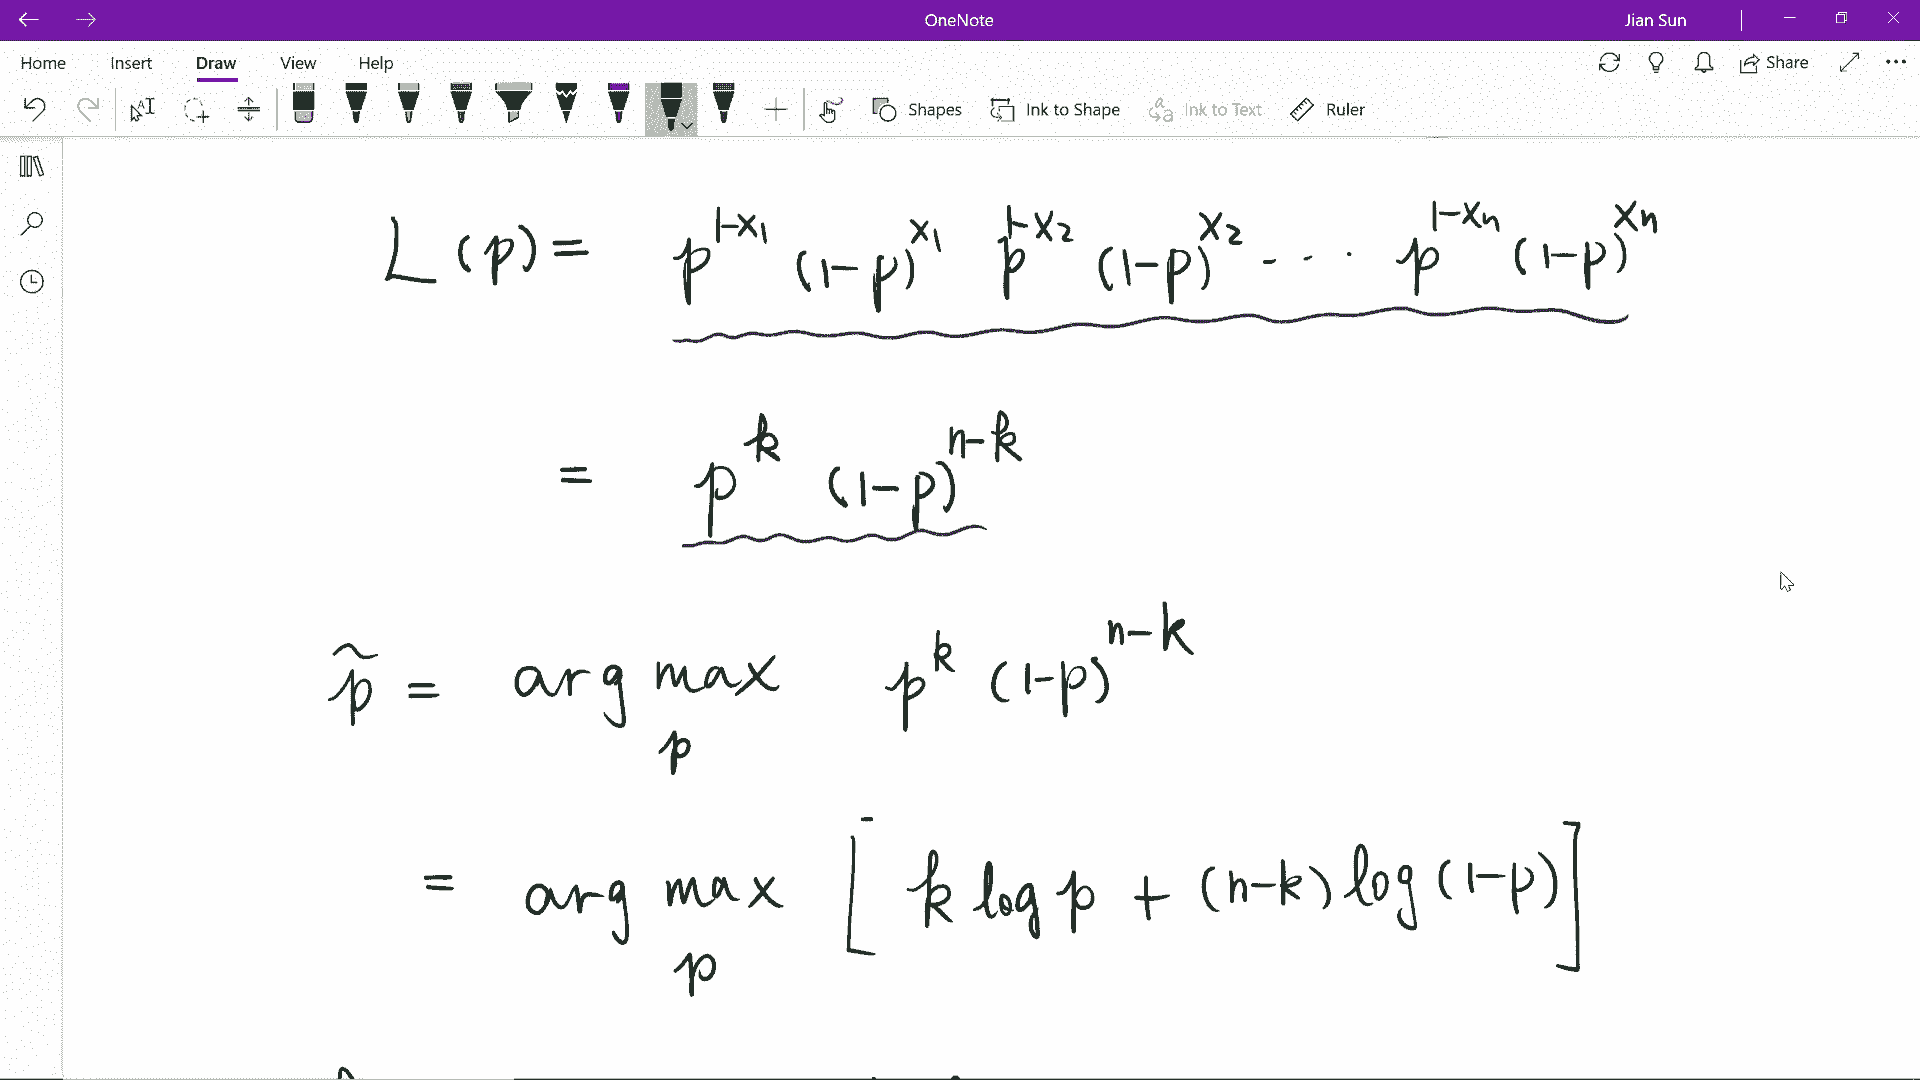 OneNote
Jian Sun
Home Insert Draw View Help
Share
Shapes Ink to Shape Ink to Text Ruler
L(p) = p^{1-x_1} (1-p)^{x_1} p^{1-x_2} (1-p)^{x_2} ... p^{1-x_n} (1-p)^{x_n}
= p^k (1-p)^{n-k}
p̃ = arg max_p p^k (1-p)^{n-k}
= arg max_p [ k log p + (n-k) log (1-p) ]